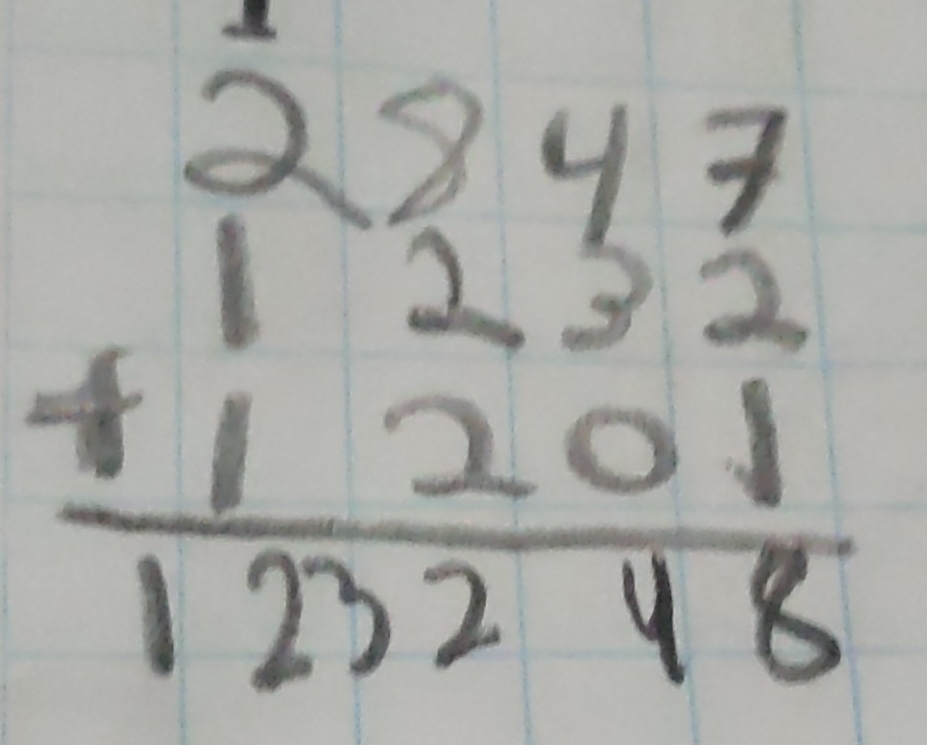 1
2847
1232
+ 1201
123248